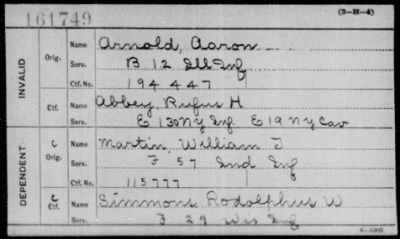 161749
(3-H-4)
INVALID
Orig. Name Arnold, Aaron
Serv. B 12 Ill Inf
Ctf. No. 194 447
Ctf. Name Abbey, Rufus H
Serv. E 130 NY Inf. E 19 NY Cav
DEPENDENT
C Orig. Name Martin, William J
Serv. F 57 Ind Inf
Ctf. No. 115777
C Ctf. Name Simmons Rodolphus W
Serv. F 29 Wis Inf